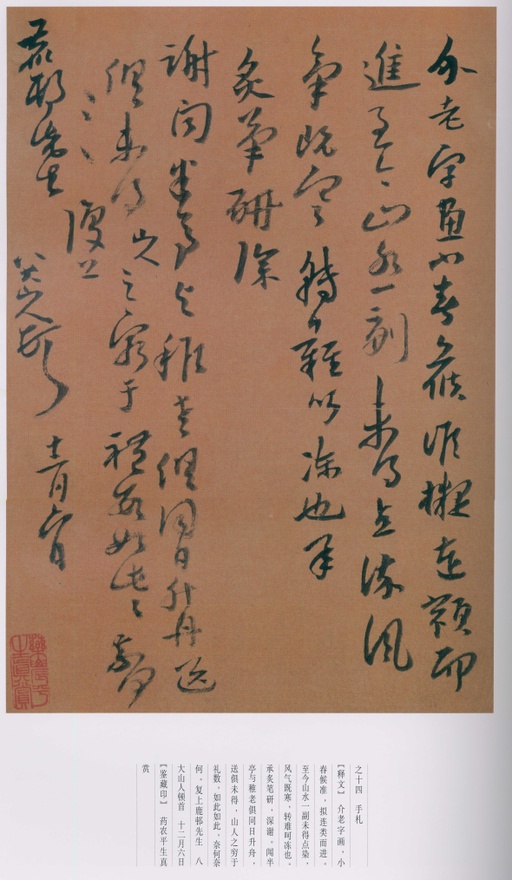 介老字畫小春候准擬連類而
進至今山水一副未得點染風
氣既寒轉難呵凍也承
炙筆研深
謝聞半亭与稚老俱同日升舟送
俱未得山人之窮于禮數如此〻奈何
〻〻復上
鹿邨先生
八大山人頓首
十二月六日
藥農平生真賞
之十四 手札
【释文】 介老字画。小
春候准，拟连类而进。
至今山水一副未得点染，
风气既寒，转难呵冻也。
承炙笔研，深谢。闻半
亭与稚老俱同日升舟，
送俱未得，山人之穷于
礼数，如此如此，奈何奈
何。复上鹿邨先生 八
大山人顿首 十二月六日
【鉴藏印】 药农平生真
赏